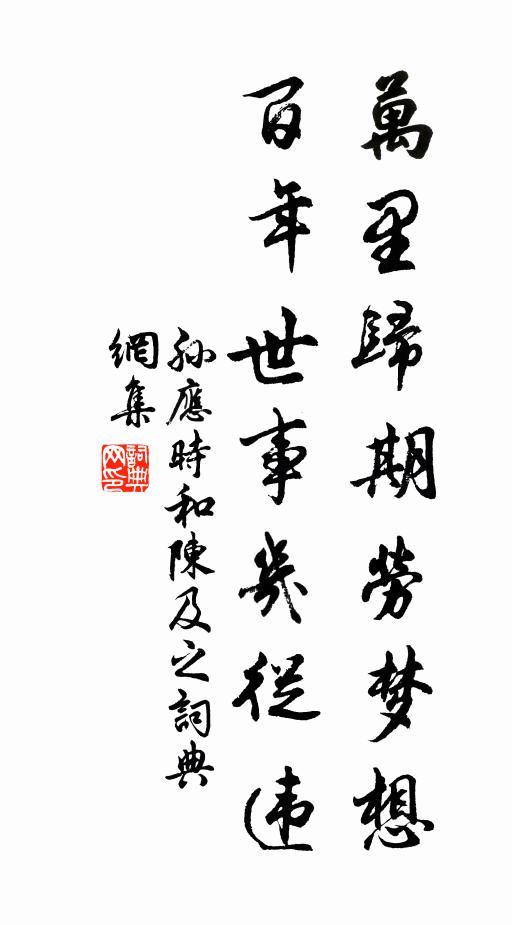 萬里歸期勞梦想
百年世事幾從违
孫應時和陳及之詞典
網集
詞典
网印